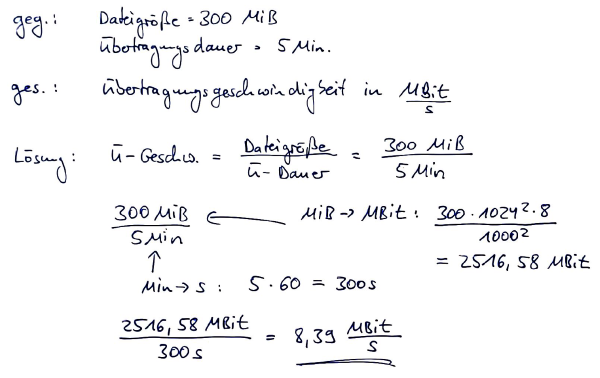 geg.: Dateigröße = 300 MiB
Übertragungsdauer = 5 Min.
ges.: Übertragungsgeschwindigkeit in MBit/s
Lösung: Ü-Geschw. = Dateigröße / Ü-Dauer = 300 MiB / 5 Min
300 MiB / 5 Min ← MiB → MBit: 300 · 1024² · 8 / 1000²
= 2516,58 MBit
↑
Min → s: 5 · 60 = 300 s
2516,58 MBit / 300 s = 8,39 MBit/s